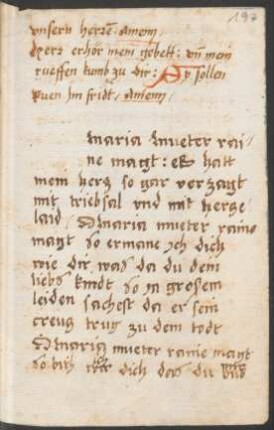 197
vnsern hertzē Amenn
O herr erhör mein gebett: vn̄ mein
rueffen kumb zu dir: Sy sollen
ruen Im fridt / Amenn /
Maria mueter rai-
ne magt: es hatt
mein hertz so gar verzagt
mit triebsal vnd mit hertze
laid / O Maria mueter raine
magt so ermane ich dich
wie dir was da du dein
liebs kindt so in grosem
leiden sachest da er sein
creutz trug zu dem todt
O Maria mueter raine magt
so bith dich das du